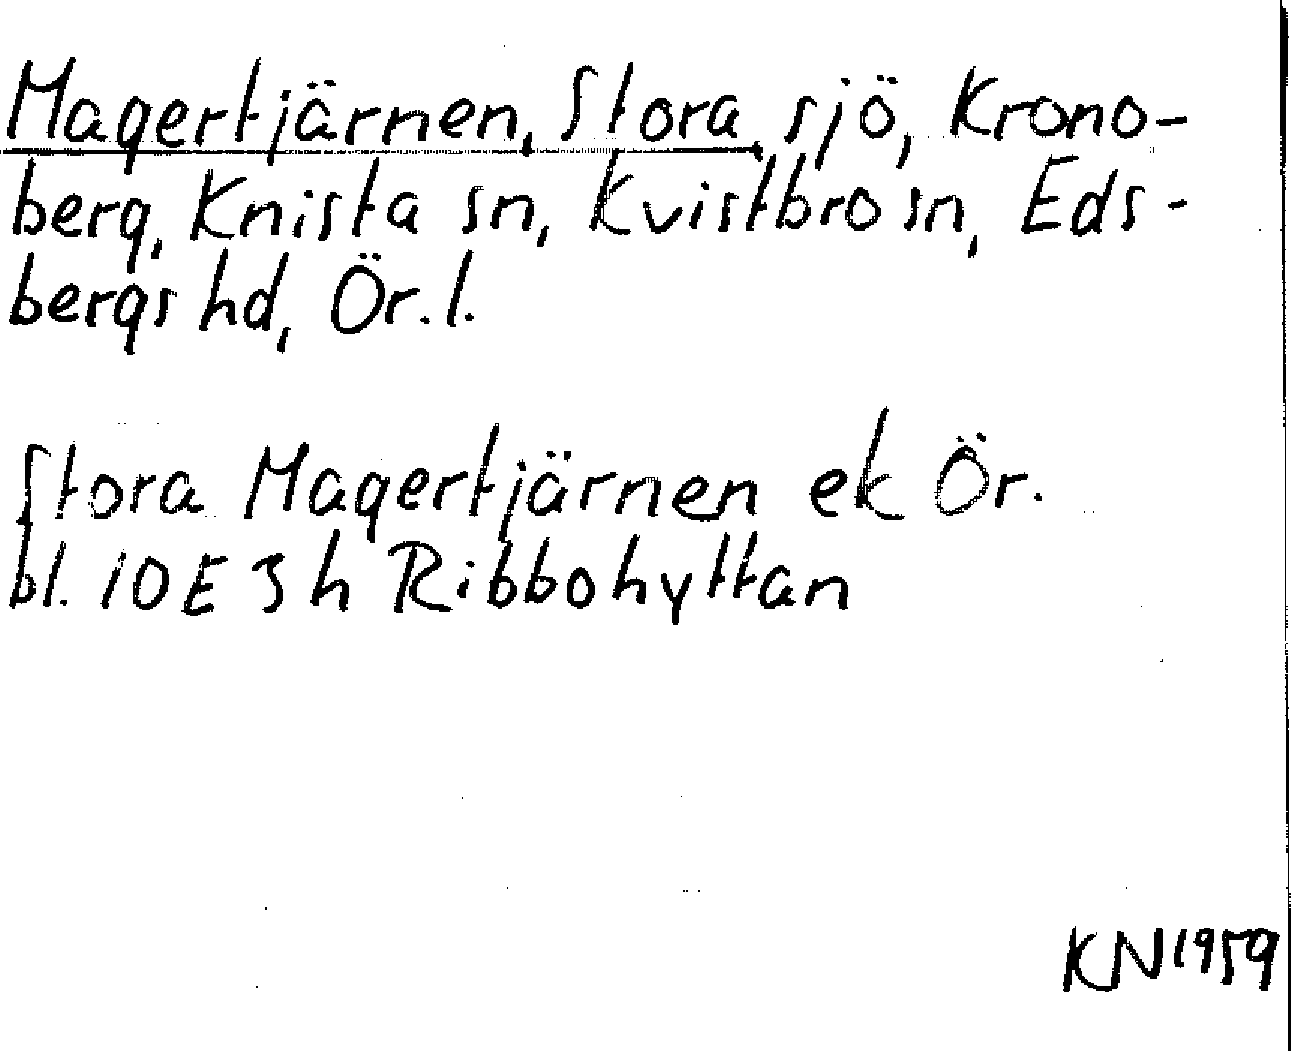 Magertjärnen, Stora, sjö, Krono-
berg, Knista sn, Kvistbro sn, Eds-
bergs hd, Ör. l.
Stora Magertjärnen ek Ör.
bl. 10E 3h Ribbohyttan
KN 1959